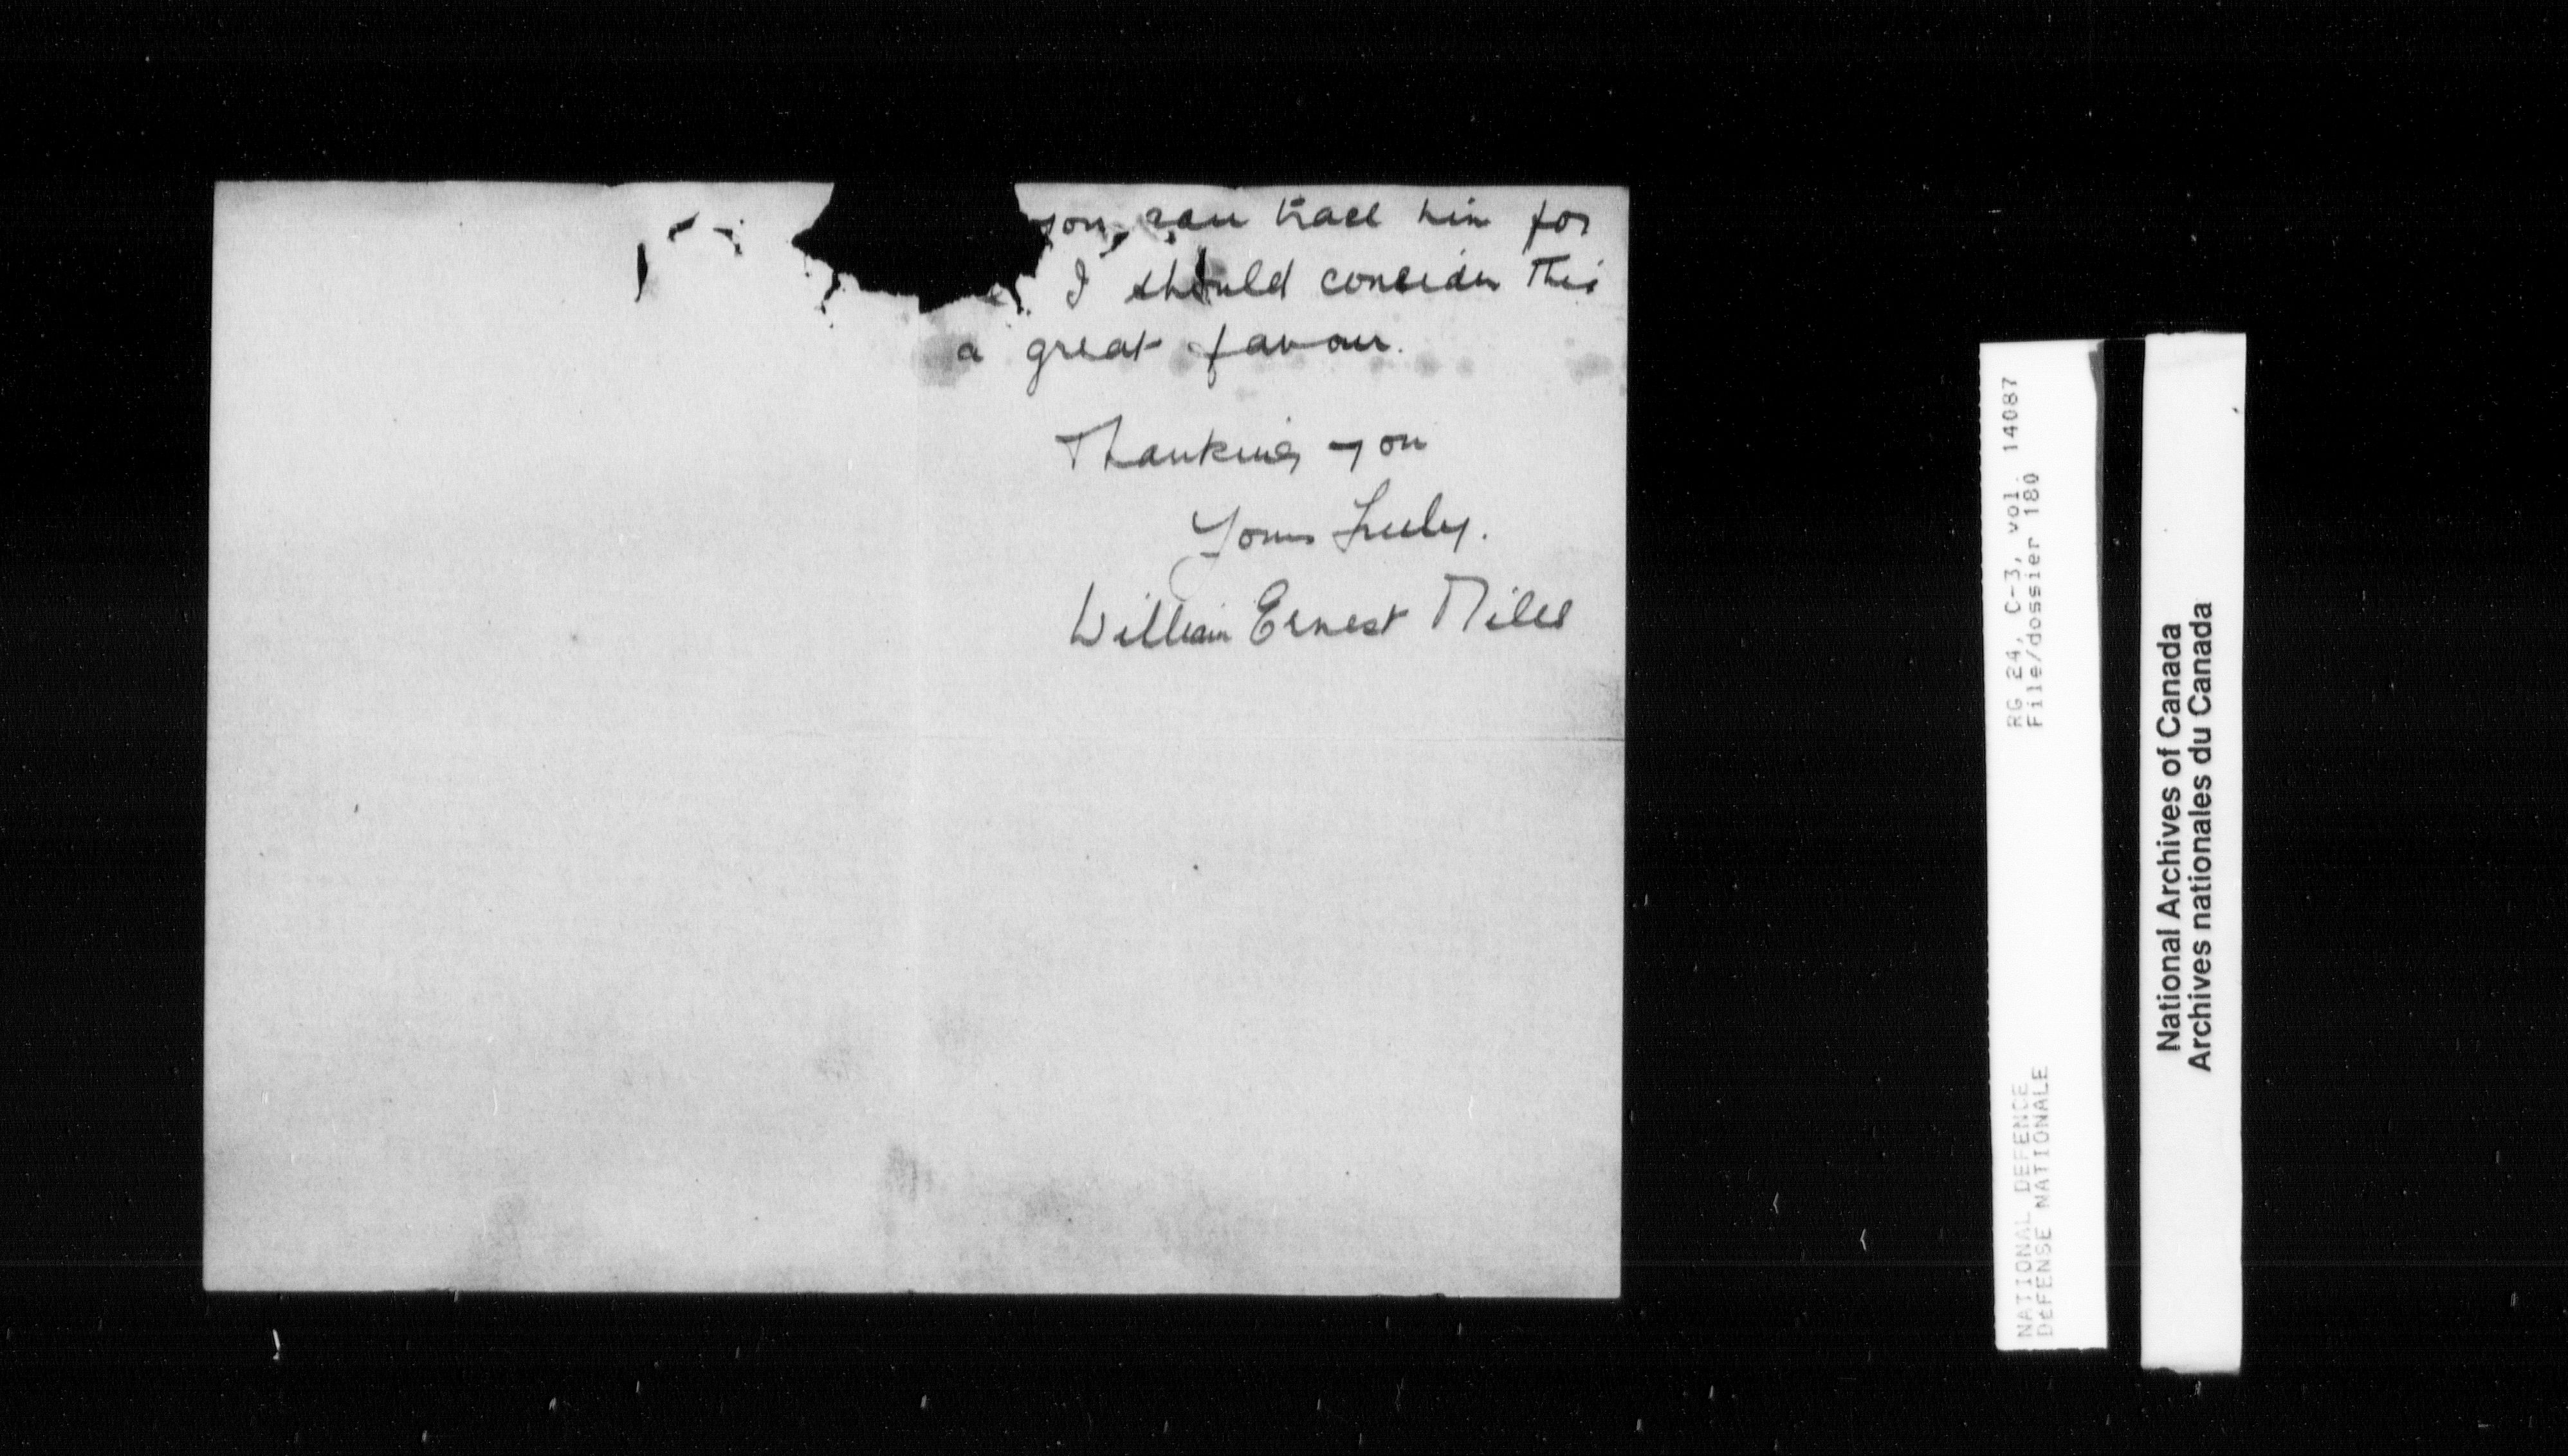 you can trace him for
I should consider this
a great favour.
Thanking you
Yours Truly.
William Ernest
RG 24, C-3, vol. 14087
File/dossier 180
NATIONAL DEFENCE
DéFENSE NATIONALE
National Archives of Canada
Archives nationales du Canada